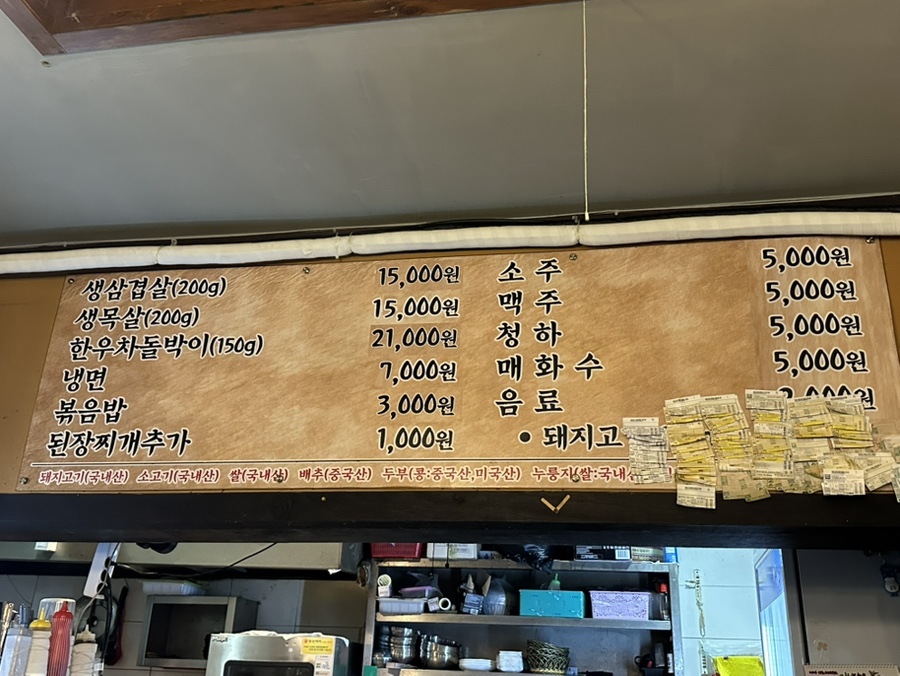 생삼겹살(200g) 15,000원
생목살(200g) 15,000원
한우차돌박이(150g) 21,000원
냉면 7,000원
볶음밥 3,000원
된장찌개추가 1,000원
소주 5,000원
맥주 5,000원
청하 5,000원
매화수 5,000원
음료
• 돼지고
돼지고기(국내산) 소고기(국내산) 쌀(국내산) 배추(중국산) 두부(콩:중국산,미국산) 누룽지(쌀:국내